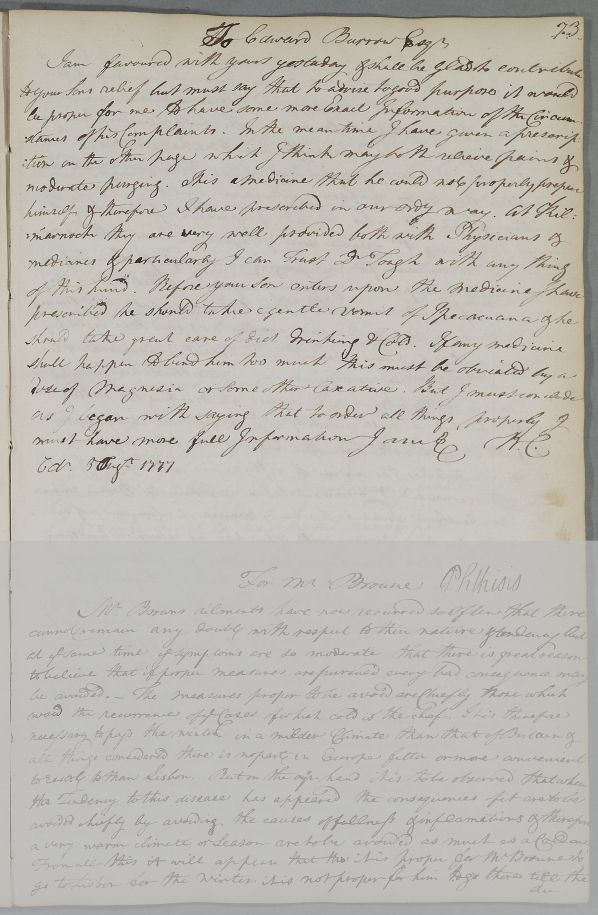 73.
To Edward Burrow Esqr
I am favoured with yours yesterday & shall be glad to contribute
to your Sons relief but must say that to advise to good purpose it would
be proper for me to have some more Exact Information of the Circum
stances of his Complaints. In the mean time I have given a prescrip:
:tion on the other page which I think may both relieve pains &
moderate purging. This a medicine that he could not properly prepare
himself & therefore I have prescribed in our ordy way. At Kil:
:marnock they are very well provided both with Physicians &
medicines & particularly I can trust Dr Tough with any thing
of this kind. Before your Son enters upon the Medicine I have
prescribed he should take a gentle vomit of Ipecacuana & he
should take great care of diet drinking & Cold. If any medicine
shall happen to bind him too much this must be obviated by a
dose of Magnesia or some other laxative. But I must conclude
as I began with saying that to order all things properly I
must have more full Information I am &c W. C.
Edr. 5 Augt 1777
For Mr Broune Phthisis
Mr. Brouns ailments have now recurred so often that there
cannot remain any doubt with respect to their nature & tendency but
at ye same time ye symptoms are so moderate that there is great reason
to believe that if proper measures are pursued every bad consequence may
be avoided. - The measures proper to be are chiefly those which
avoid the recurrence of ye Causes for which cold is the chief. It is therefore
necessary to pass the winter in a milder Climate than that of Britain &
all things considered there is no part in Europe fitter or more convenient
to resort to than Lisbon. But on the oyr hand it is to be observed that when
the Tendency to this disease has appeared the consequences of it are to be
avoided chiefly by avoiding the causes of fullness & inflammations & therefore
a very warm climate or Season are to be avoided as much as a Cold one
From all this it will appear that tho it is proper for Mr Broune to
go to Lisbon for the winter it is not proper for him to go there till the